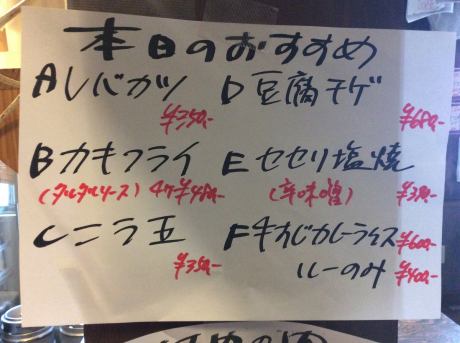 本日のおすすめ
Aレバカツ
¥350-
Bカキフライ
(タルタルソース) 4ケ¥480-
Cニラ玉
¥350-
D豆腐モゲ
¥680-
Eセセリ塩焼
¥380-
F牛すじカレーライス¥600-
ルーのみ ¥400-